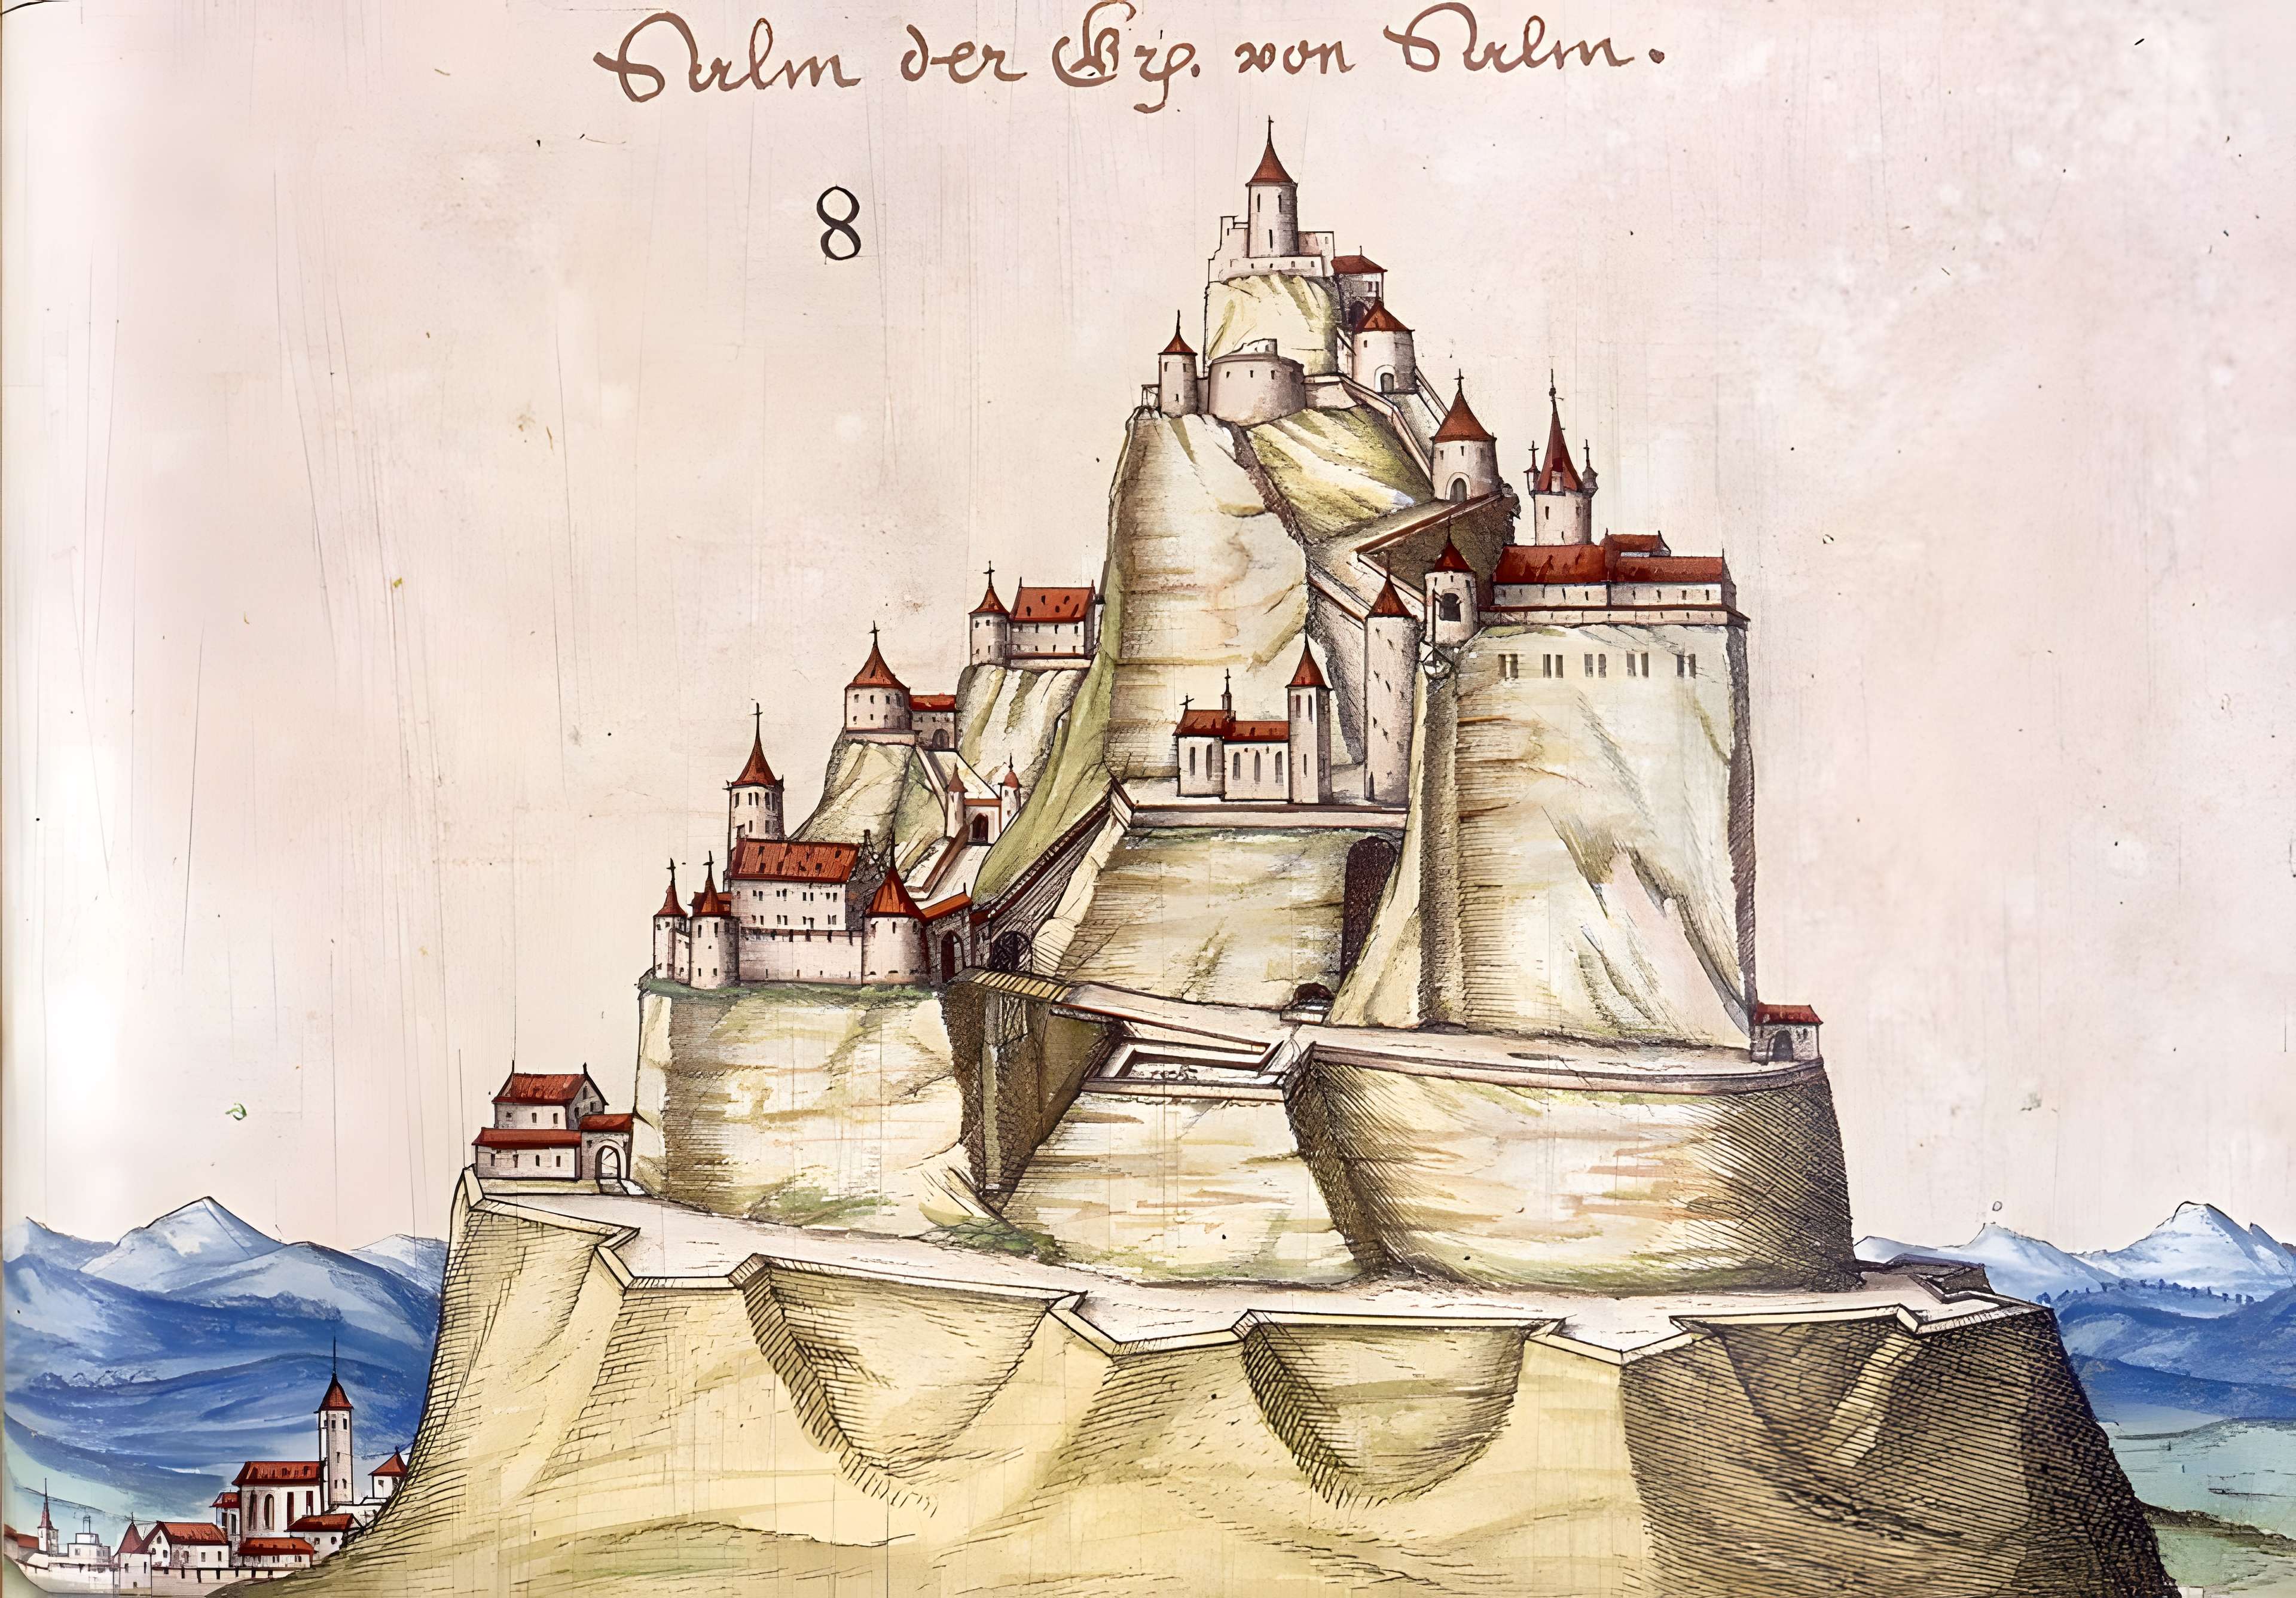 Salm der Grn. von Salm.
8